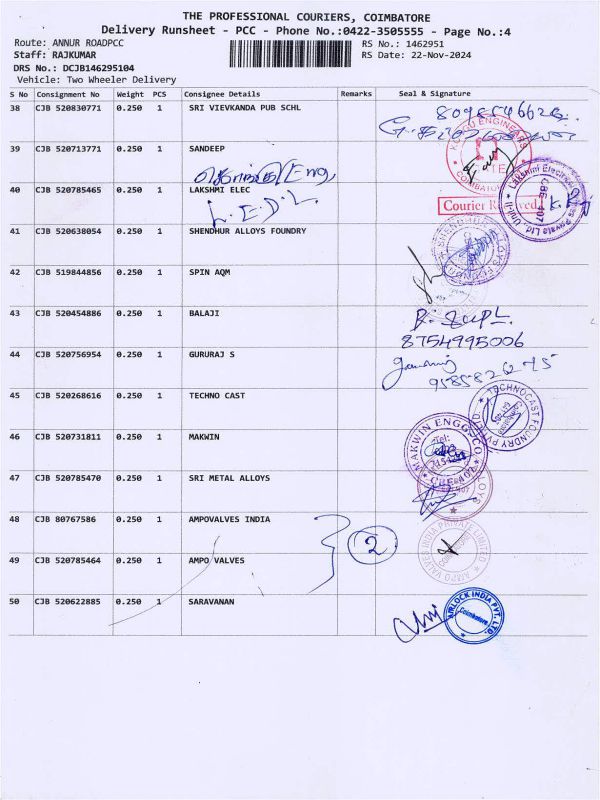 THE PROFESSIONAL COURIERS, COIMBATORE
Delivery Runsheet - PCC - Phone No.:0422-3505555 - Page No.:4
Route: ANNUR ROADPCC RS No.: 1462951
Staff: RAJKUMAR RS Date: 22-Nov-2024
DRS No.: DCJB146295104
Vehicle: Two Wheeler Delivery
S No Consignment No Weight PCS Consignee Details Remarks Seal & Signature
38 CJB 520830771 0.250 1 SRI VIEVKANDA PUB SCHL
39 CJB 520713771 0.250 1 SANDEEP
40 CJB 520785465 0.250 1 LAKSHMI ELEC
L.E.D.L.
Courier
41 CJB 520638054 0.250 1 SHENDHUR ALLOYS FOUNDRY
42 CJB 519844856 0.250 1 SPIN AQM
43 CJB 520454886 0.250 1 BALAJI
8754995006
44 CJB 520756954 0.250 1 GURURAJ S
45 CJB 520268616 0.250 1 TECHNO CAST
TECHNOCAST FOUNDRY
46 CJB 520731811 0.250 1 MAKWIN
MAKWIN ENGG
47 CJB 520785470 0.250 1 SRI METAL ALLOYS
48 CJB 80767586 0.250 1 AMPOVALVES INDIA
2
AMPO VALVES INDIA PRIVATE LIMITED
49 CJB 520785464 0.250 1 AMPO VALVES
50 CJB 520622885 0.250 1 SARAVANAN
INDIA PVT. LTD.
Coimbatore